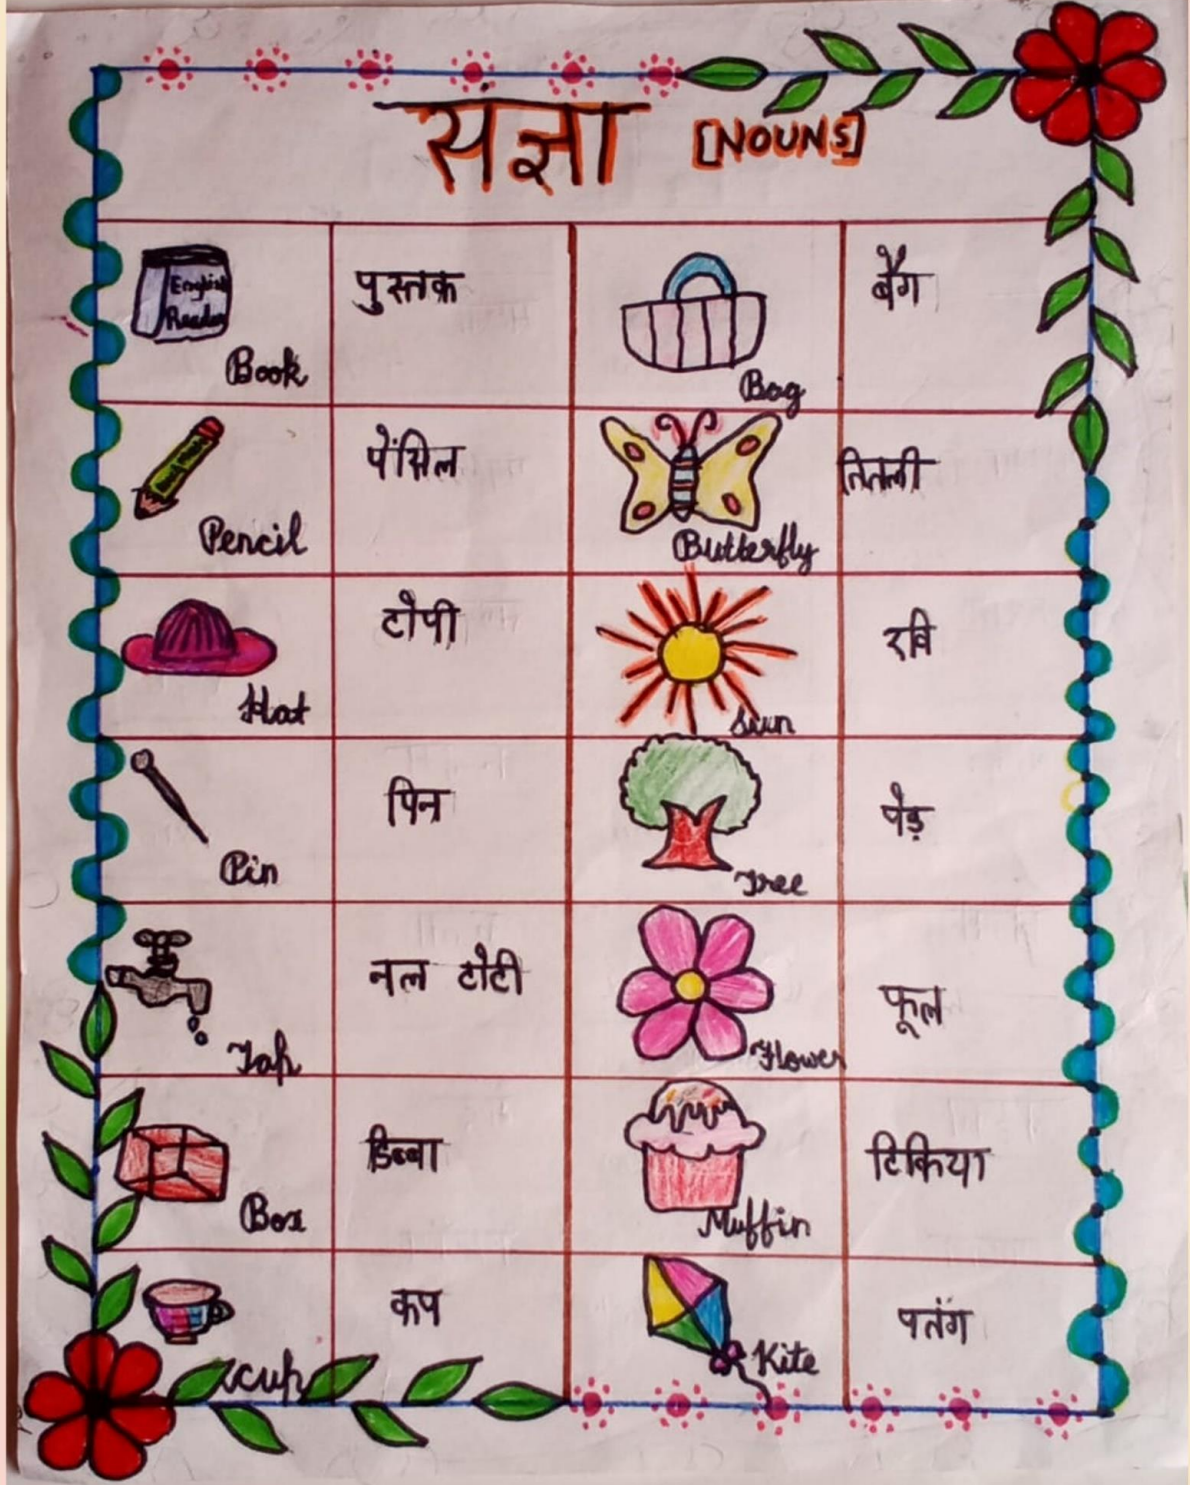 संज्ञा [NOUNS]
English
Reader
Book
पुस्तक
Bag
बैग
Pencil
पेंसिल
Butterfly
तितली
Hat
टोपी
Sun
रवि
Pin
पिन
Tree
पेड़
Tap
नल टोटी
Flower
फूल
Box
डिब्बा
Muffin
टिकिया
cup
कप
Kite
पतंग